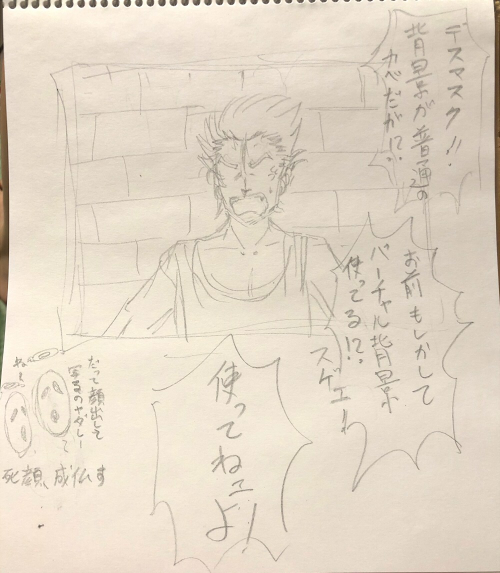 デスマスク!!
背景が普通の
カベだが!?
お前もしかして
バーチャル背景
使ってる!?
スゲェー
使ってねェよ!
だって顔出して
写るのヤダしー
ねー
死顔、成仏す